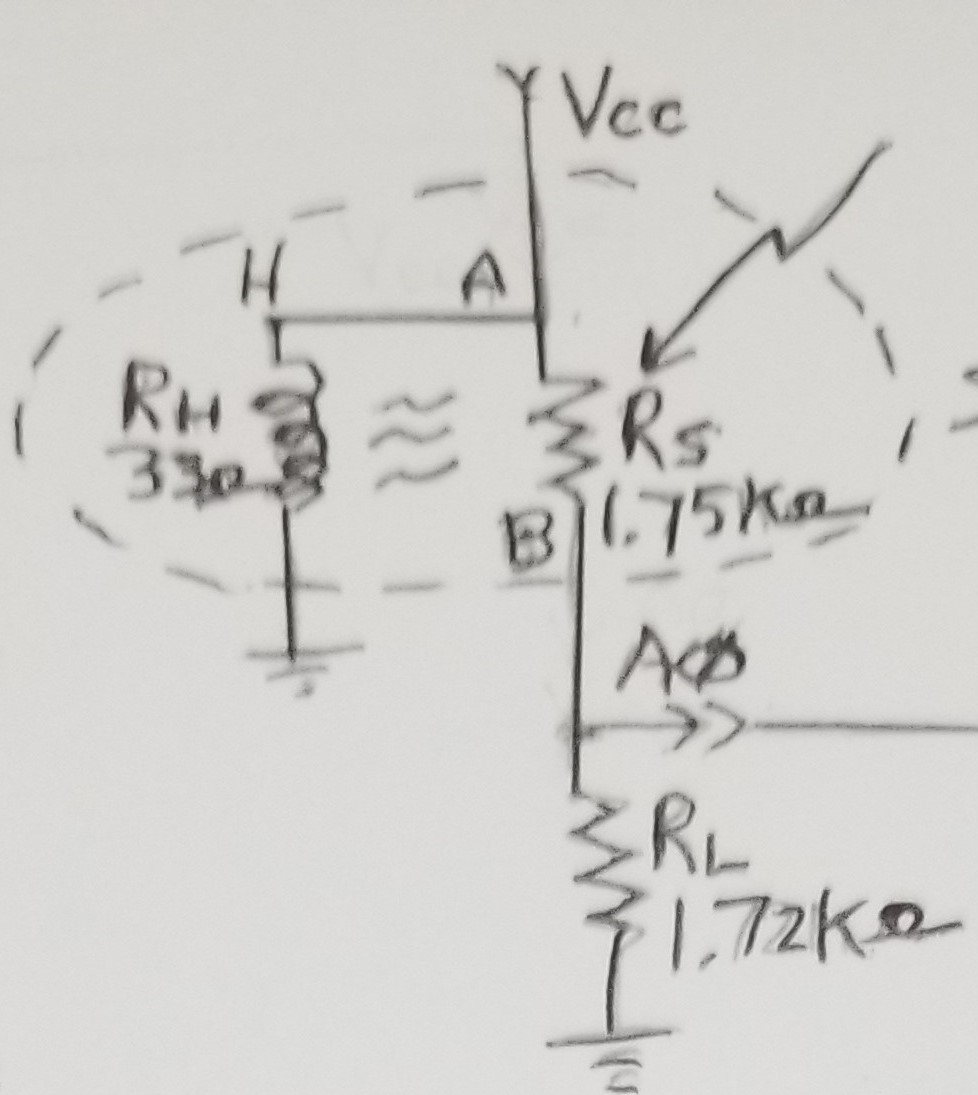 Vcc
H
A
RH
33Ω
RS
1.75KΩ
B
A0
RL
1.72KΩ